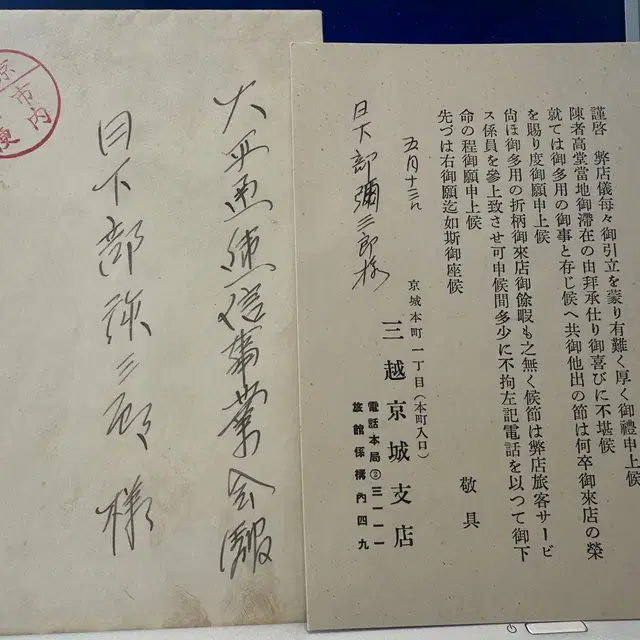 謹啓 弊店儀毎々御引立を蒙り有難く厚く御禮申上候
陳者高堂當地御滞在の由拜承仕り御喜びに不堪候
就ては御多用の御事と存じ候へ共御他出の節は何卒御來店の榮
を賜り度御願申上候
尙ほ御多用の折柄御來店御餘暇も之無く候節は弊店旅客サービ
ス係員を參上致させ可申候間多少に不拘左記電話を以つて御下
命の程御願申上候
先づは右御願迄如斯御座候
敬具
五月十三日
京城本町一丁目(本町入口)
三越京城支店
電話本局②三一一一
旅館係構內四九
日下部彌三郎様
大平
通信事業会館
日下部弥三郎様
京
市内
便